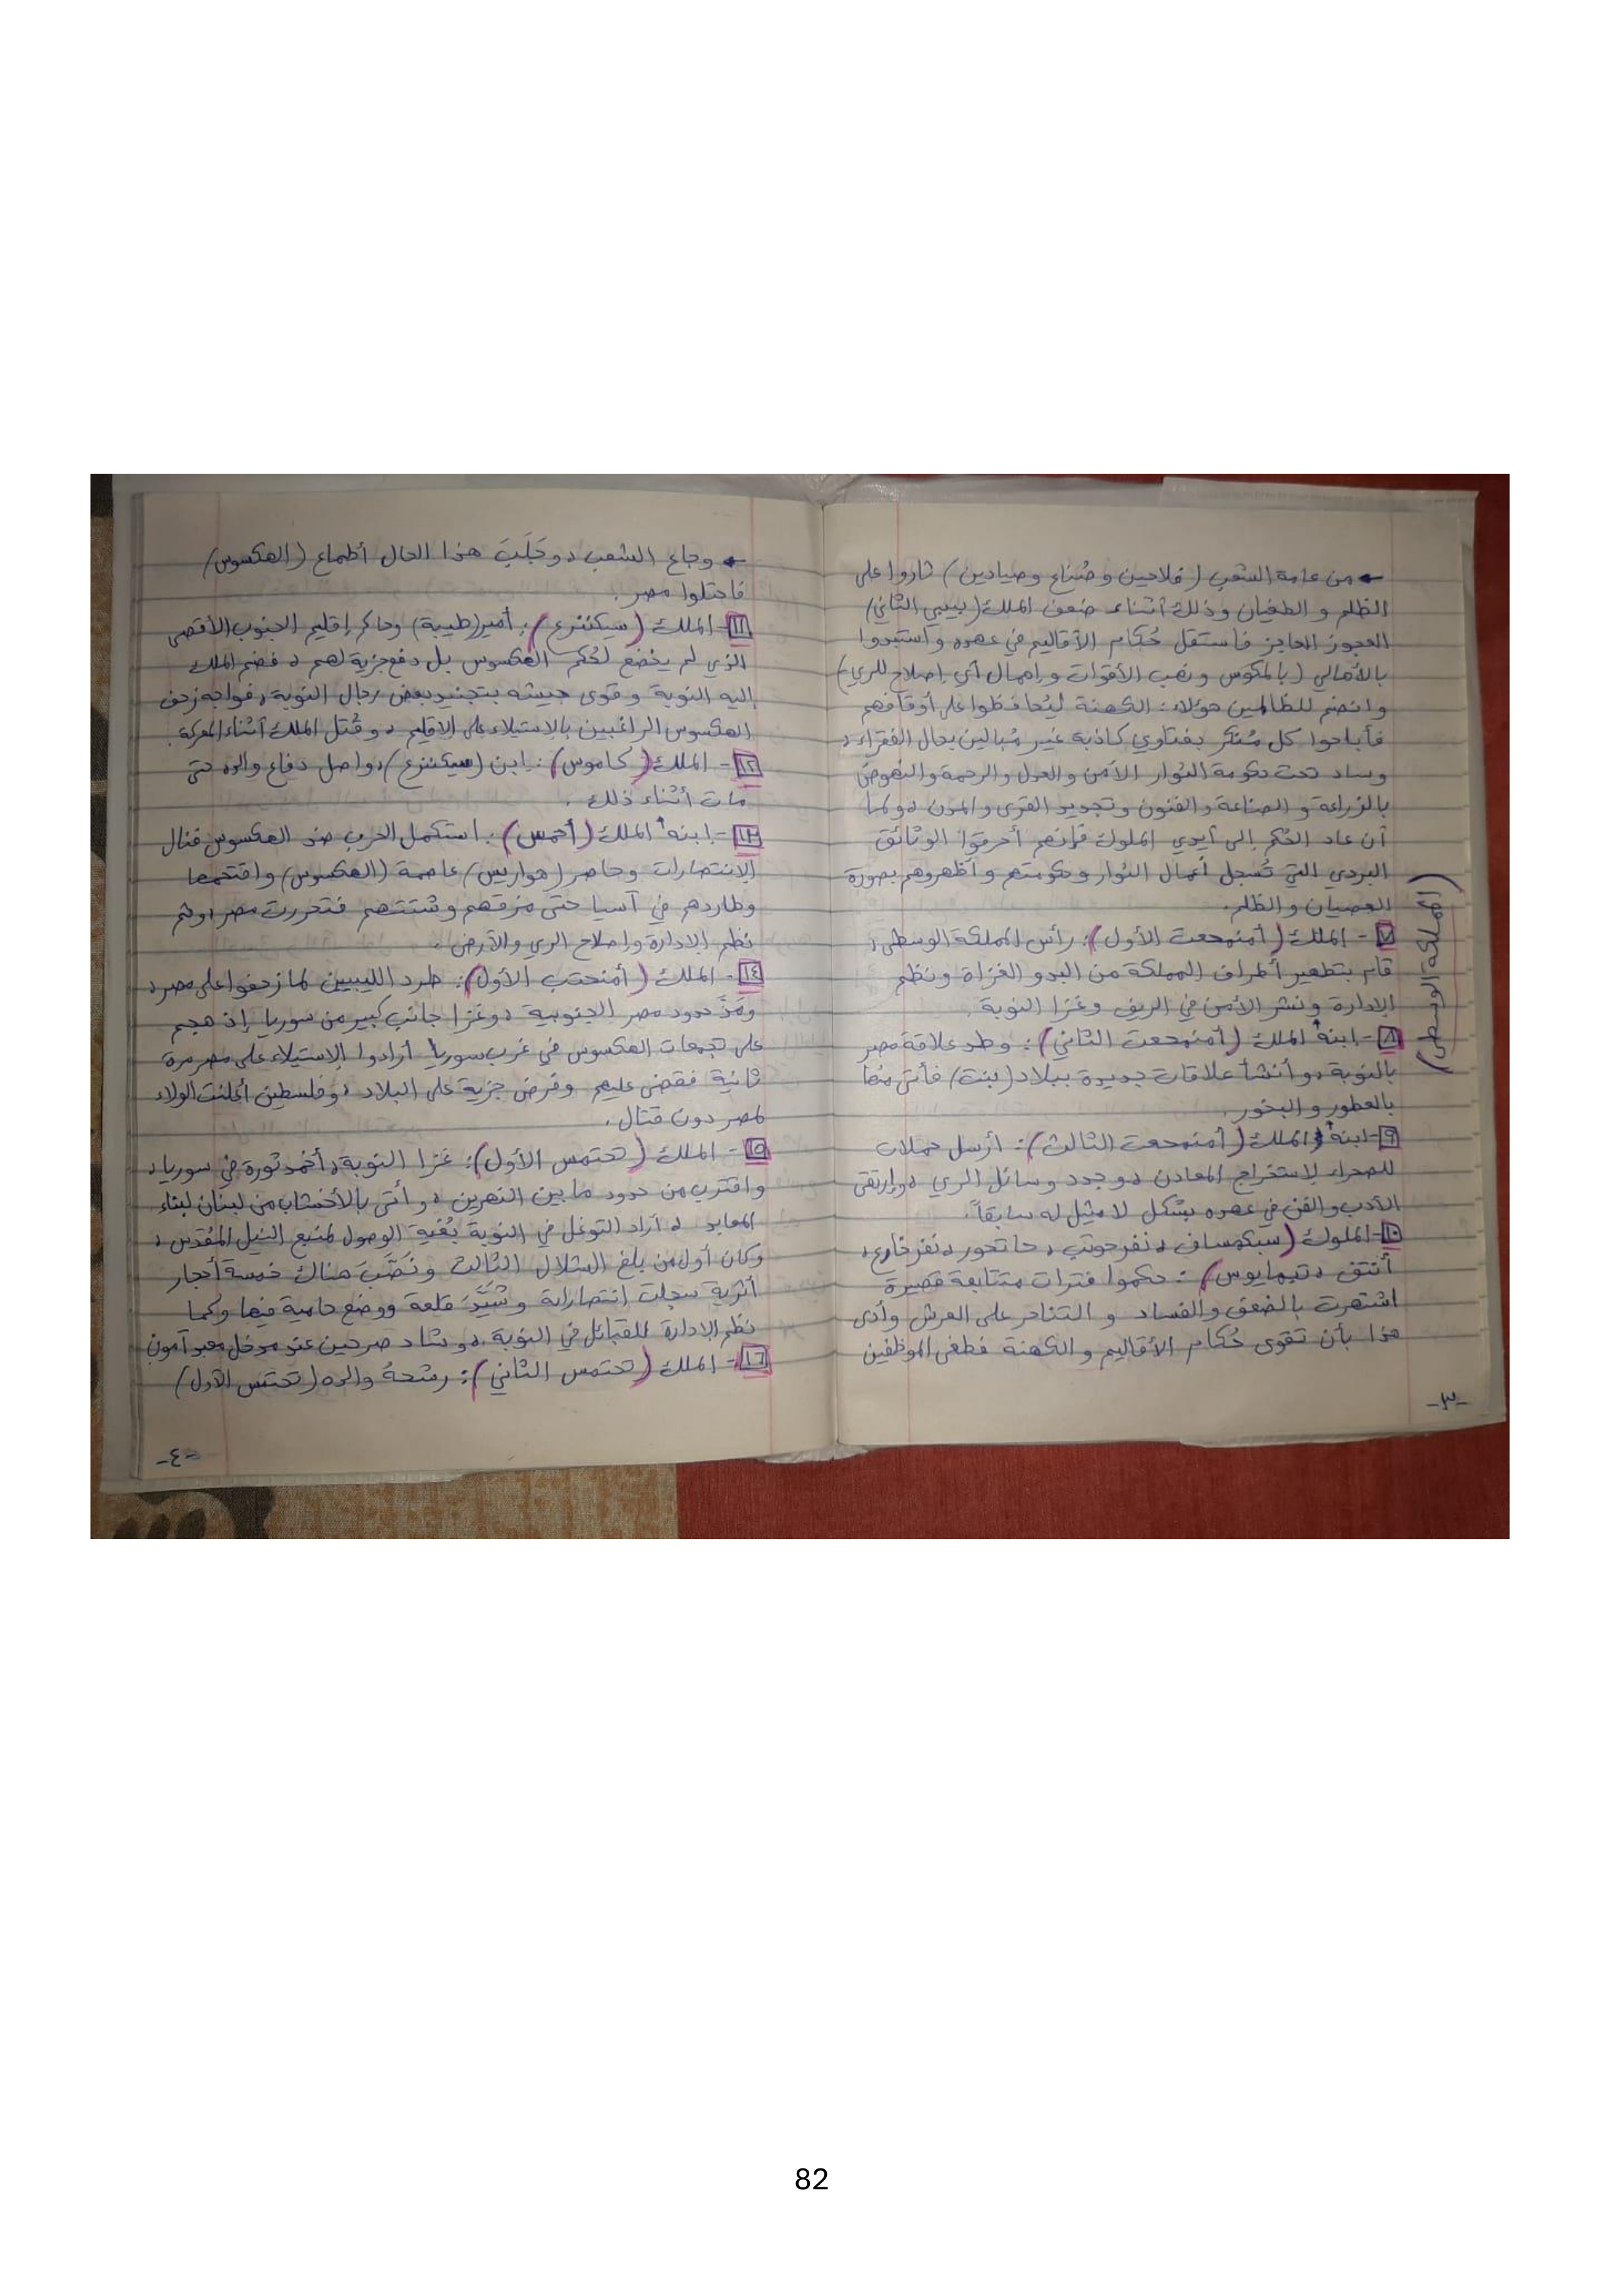 ← من عامة الشعب (فلاحين وصُناع وصيادين) ثاروا على
الظلم والطغيان وذلك أثناء ضعف الملك (بيبي الثاني)
العجوز العاجز فاستقل حُكام الأقاليم في عهده واستبدوا
بالأهالي (بالمكوس ونهب الأقوات وإهمال أي إصلاح للري)
وانضم للظالمين هؤلاء: الكهنة ليُحافظوا على أوقافهم
فأباحوا كل مُنكر بفتاوي كاذبة غير مُبالين بحال الفقراء،
وساد تحت حكومة الثوار الأمن والعدل والرحمة والنهوض
بالزراعة والصناعة والفنون وتجديد القرى والمدن، ولما
أن عاد الحُكم إلى أيدي الملوك فإنهم أحرقوا الوثائق
البردي التي تُسجل أعمال الثوار وحكومتهم وأظهروهم بصورة
العصيان والظلم.
(المملكة الوسطى)
٧- الملك (أمنمحعت الأول): رأس المملكة الوسطى،
قام بتطهير أطراف المملكة من البدو الغزاة ونظم
الإدارة ونشر الأمن في الريف وغزا النوبة.
٨- ابنه الملك (أمنمحعت الثاني): وطد علاقة مصر
بالنوبة، وأنشأ علاقات جديدة ببلاد (بنت) فأتى منها
بالعطور والبخور.
٩- ابنه الملك (أمنمحعت الثالث): أرسل حملات
للصحراء لاستخراج المعادن، وجدد وسائل الري، وإرتقى
الأدب والفن في عهده بشكل لا مثيل له سابقاً.
١٠- الملوك (سبكمساف، نفرحوتب، حاتحور، نفرخارع،
أنتف، تيمايوس): حكموا فترات متتابعة قصيرة
اشتهرت بالضعف والفساد و التناحر على العرش وأدى
هذا بأن تقوى حُكام الأقاليم و الكهنة فطغى الموظفين
-٣-
← وجاع الشعب، وجَلَبَ هذا الحال أطماع (الهكسوس)
فاحتلوا مصر.
١١- الملك (سيكننرع): أمير (طيبة) وحاكم إقليم الجنوب الأقصى
الذي لم يخضع لحُكم الهكسوس بل دفع جزية لهم، فضم الملك
إليه النوبة وقوى جيشه بتجنيد بعض رجال النوبة، فواجه زحف
الهكسوس الراغبين بالإستيلاء على الاقليم، وقُتل الملك أثناء المعركة.
١٢- الملك (كاموس): ابن (سيكننرع)، واصل دفاع والده حتى
مات أثناء ذلك.
١٣- ابنه الملك (أحمس): استكمل الحرب ضد الهكسوس فنال
الإنتصارات وحاصر (هواريس) عاصمة (الهكسوس) واقتحمها
وطاردهم في آسيا حتى مزقهم وشتتهم فتحررت مصر، ثم
نظم الإدارة وإصلاح الري والأرض.
١٤- الملك (أمنحتب الأول): طرد الليبيين لما زحفوا على مصر،
ومَدَّ حدود مصر الجنوبية، وغزا جانب كبير من سوريا إذ هجم
على تجمعات الهكسوس في غرب سوريا أرادوا الإستيلاء على مصر مرة
ثانية فقضى عليهم وفرض جزية على البلاد، وفلسطين أعلنت الولاء
لمصر دون قتال.
١٥- الملك (تحتمس الأول): غزا النوبة، أخمد ثورة في سوريا،
واقترب من حدود ما بين النهرين، وأتى بالأخشاب من لبنان لبناء
المعابد، أراد التوغل في النوبة بُغية الوصول لمنبع النيل المُقدس،
وكان أول من بلغ الشلال الثالث ونَصَّبَ هناك خمسة أحجار
أثرية سجلت إنتصاراته وشَيَّدَ قلعة ووضع حامية فيها وكما
نظم الإدارة للقبائل في النوبة، وشاد صرحين عند مدخل معبد آمون
١٦- الملك (تحتمس الثاني): رشحهُ والده (تحتمس الأول)
-٤-
82